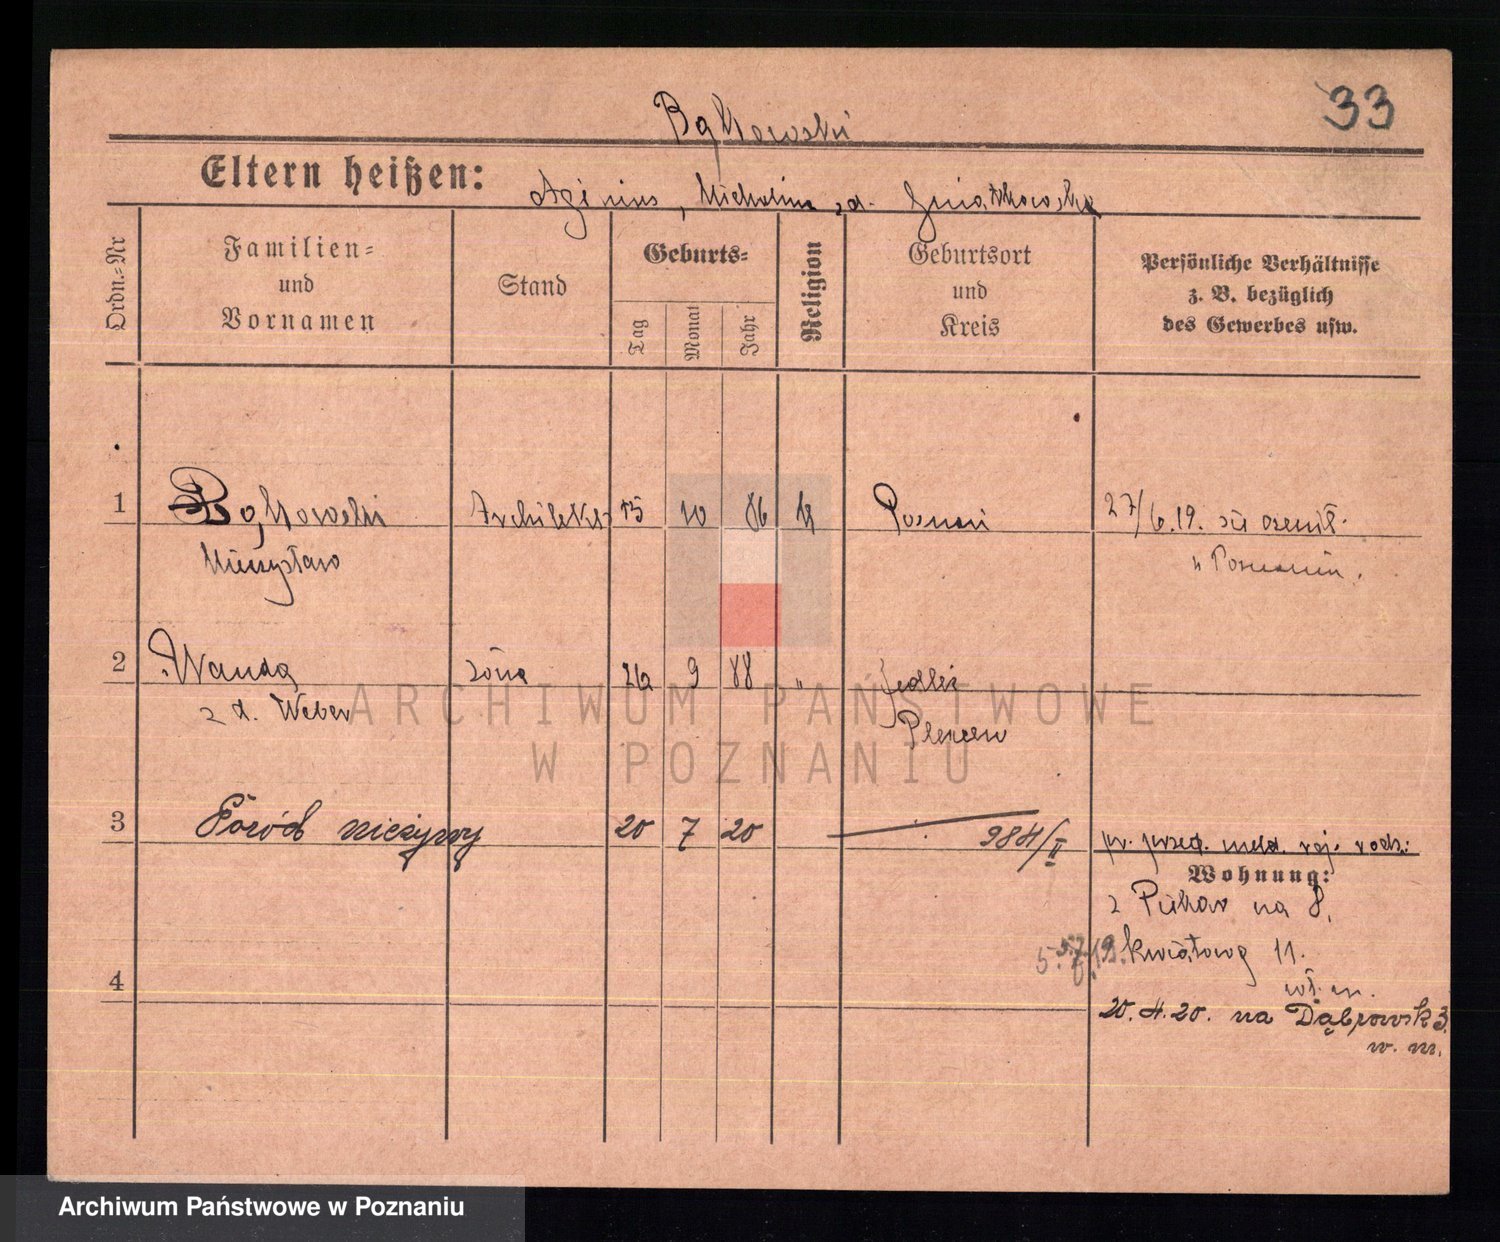 33
Bąkowski
Eltern heißen:
Michalina z d. Gniatkowska
Ordn.-Nr
Familien-
und
Vornamen
Stand
Geburts-
Tag
Monat
Jahr
Religion
Geburtsort
und
Kreis
Persönliche Verhältnisse
z. B. bezüglich
des Gewerbes usw.
1 Bąkowski Architekt 15 10 86 k Poznań 27/6.19. się ożenił
Mieczysław w Poznaniu.
2 Wanda żona 26 9 88 " Jedlec
z d. Weber Pleszew
3 Poród nieżywy 20 7 20 984/II
Wohnung:
z Piekar na 8,
5.7.19. kwiatową 11.
wł. m.
4
20.4.20. na Dąbrowsk 3.
w. m.
ARCHIWUM PAŃSTWOWE
W POZNANIU
Archiwum Państwowe w Poznaniu